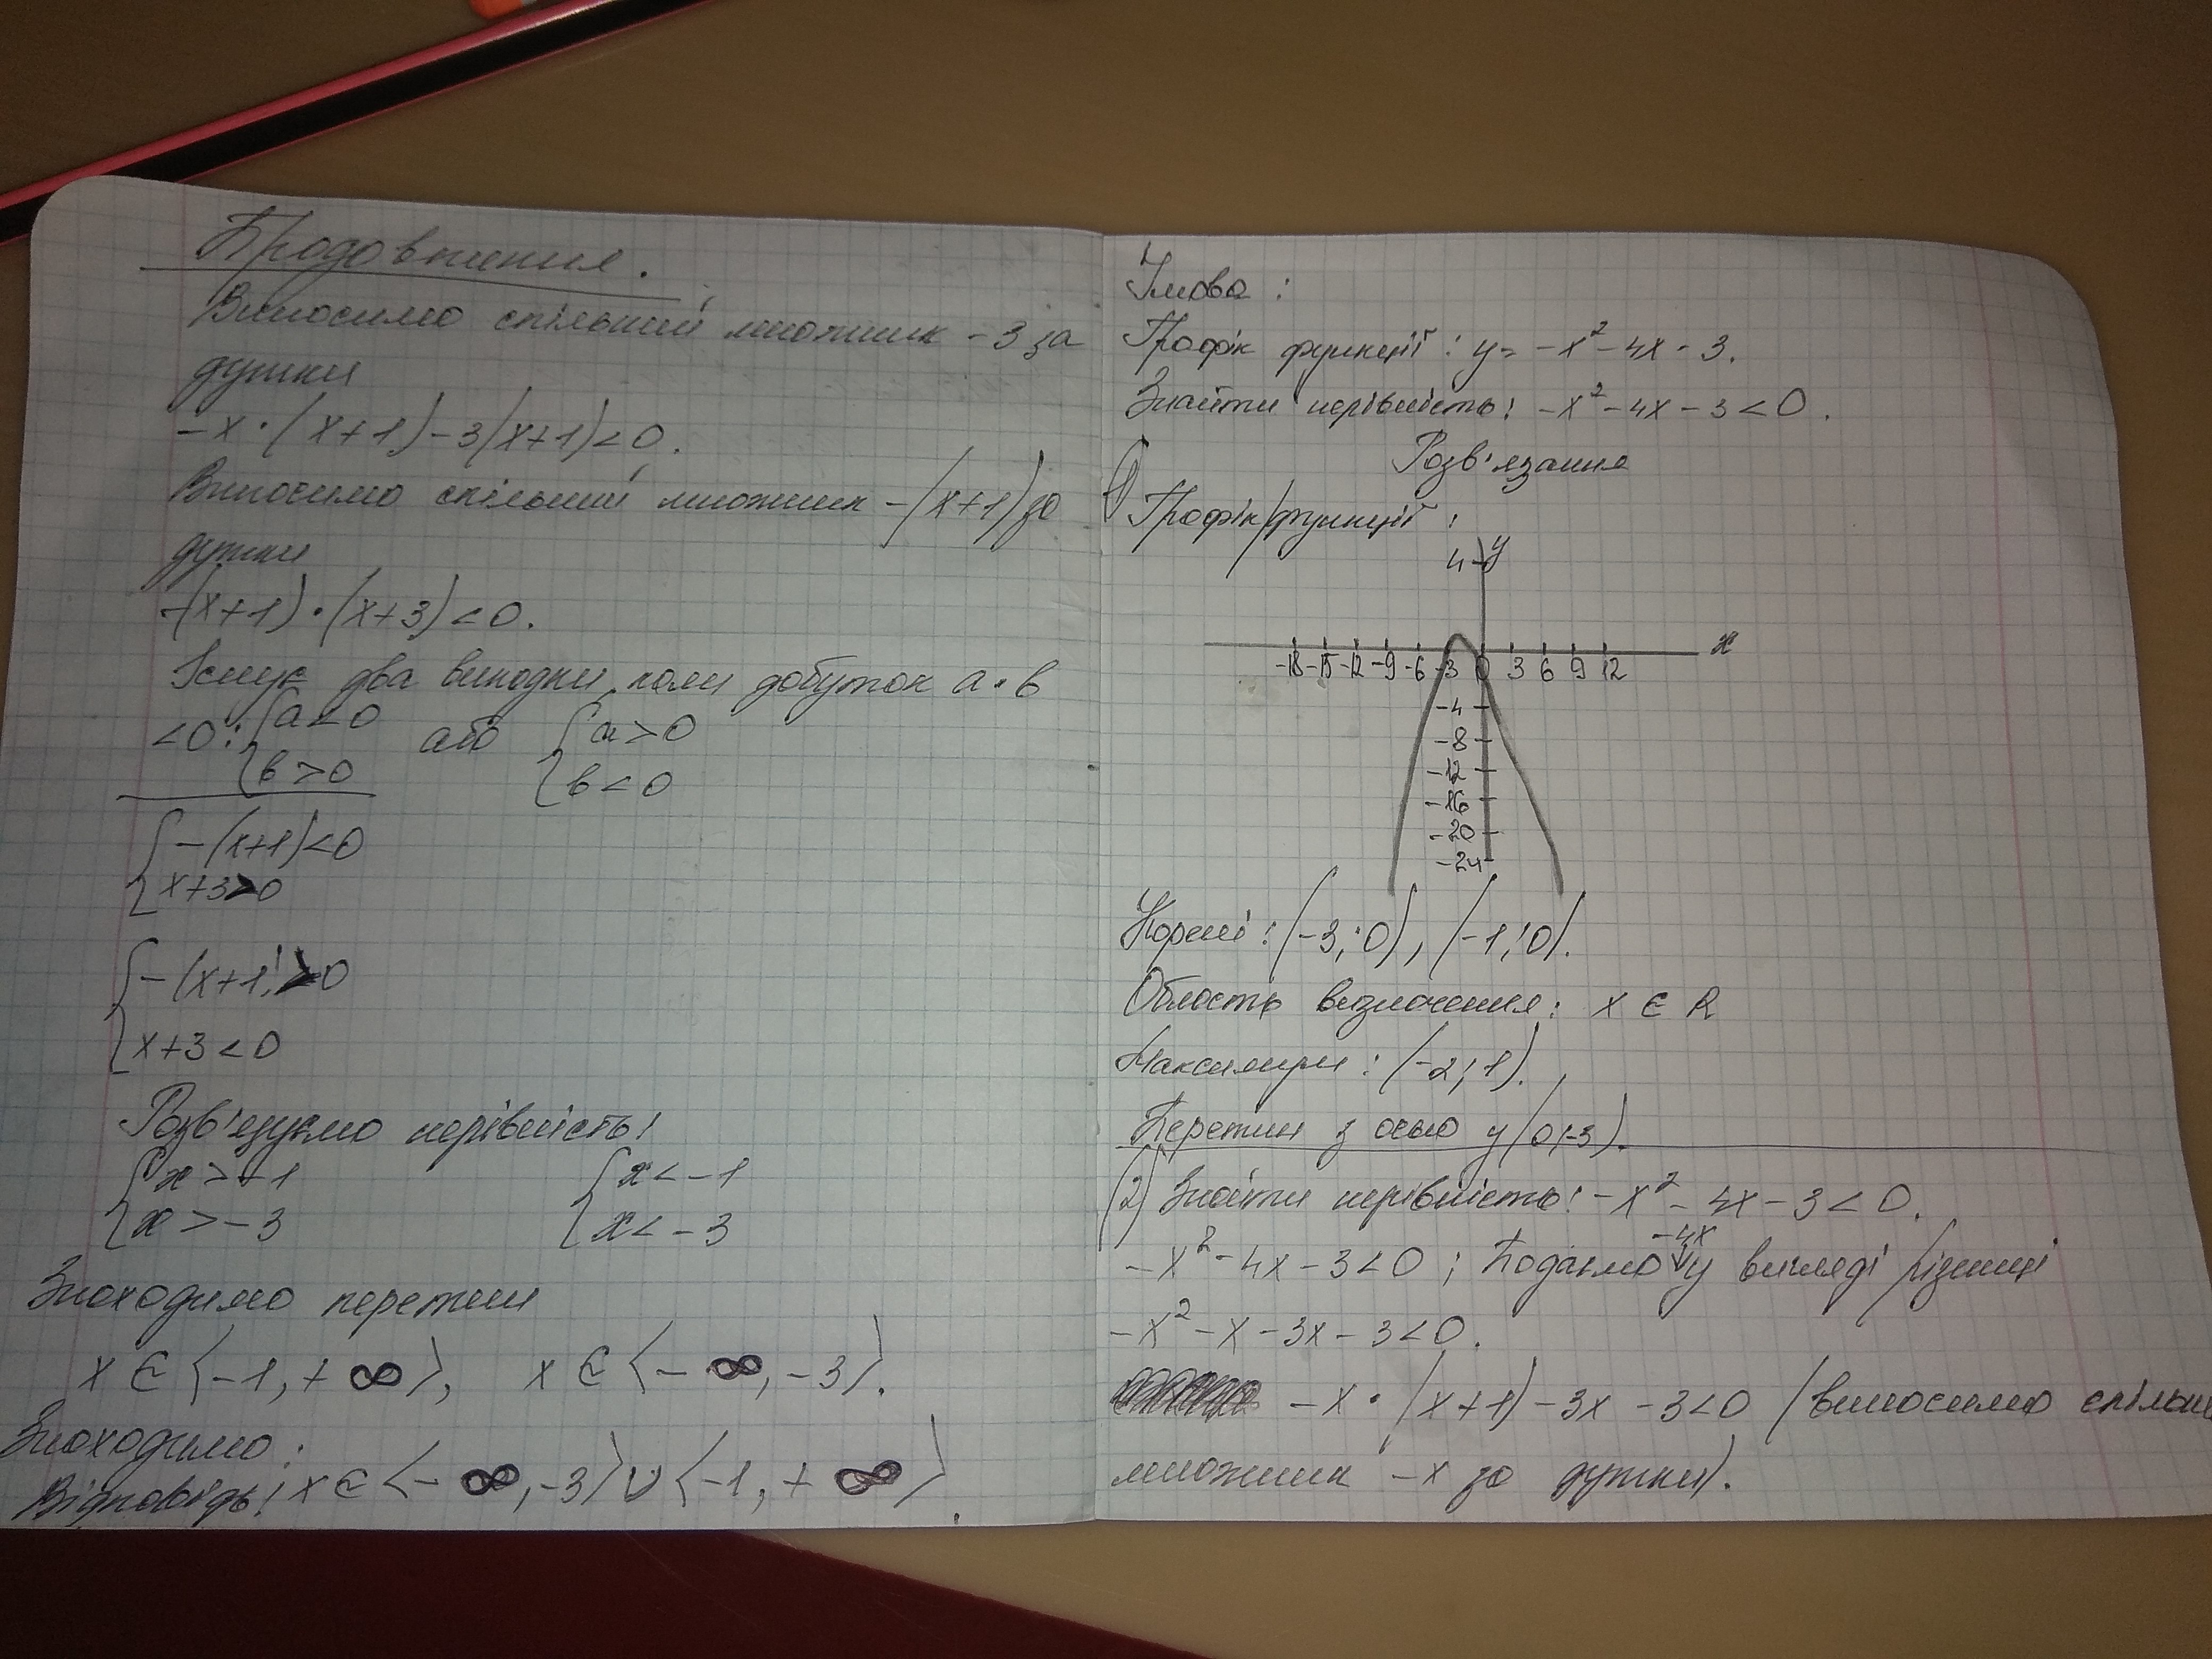 Продовження.
Виносимо спільний множник -3 за
дужки
-x·(x+1)-3(x+1)<0.
Виносимо спільний множник -(x+1) за
дужки
-(x+1)·(x+3)<0.
Існує два випадки, коли добуток a·b
<0: {a<0 або {a>0
{b>0 {b<0
{-(x+1)<0
{x+3>0
{-(x+1)>0
{x+3<0
Розв'язуємо нерівність:
{x>-1 {x<-1
{x>-3 {x<-3
Знаходимо перетин
x∈⟨-1,+∞⟩, x∈⟨-∞,-3⟩.
Знаходимо:
Відповідь: x∈⟨-∞,-3⟩∪⟨-1,+∞⟩.
Умова:
Графік функції: y=-x²-4x-3.
Знайти нерівність: -x²-4x-3<0.
Розв'язання
1) Графік функції:
4 y
x
-18 -15 -12 -9 -6 -3 0 3 6 9 12
-4
-8
-12
-16
-20
-24
Корені: (-3;0), (-1;0).
Область визначення: x ∈ R
Максимум: (-2;1).
Перетин з осью y(0;-3).
(2) Знайти нерівність: -x²-4x-3<0.
-x²-4x-3<0; Подаємо -4x у вигляді різниці
-x²-x-3x-3<0.
-x·(x+1)-3x-3<0 (виносимо спільн
множник -x за дужки).